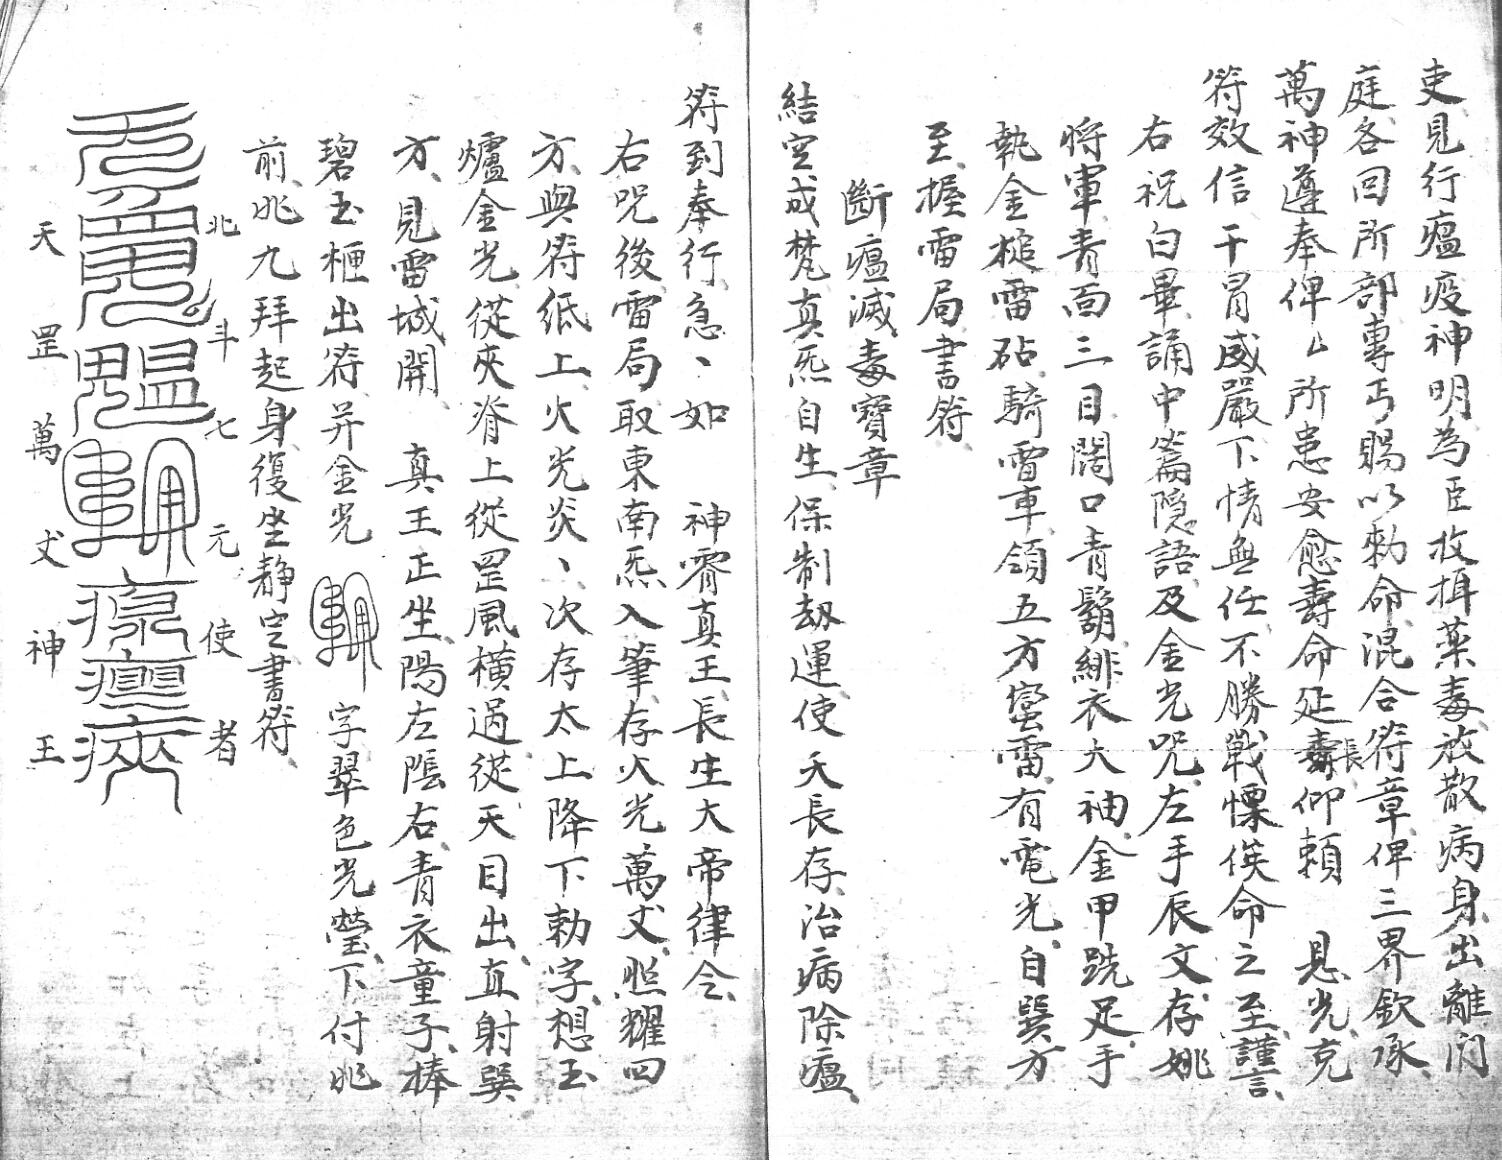 吏見行瘟疫神明為臣收揖藥毒放散病身出離門
庭各回所部專丐賜以勅命混合符章俾三界欽承
萬神遵奉俾厶所患安愈壽命延長仰賴 恩光克
符效信干冒威嚴下情無任不勝戰慄俟命之至謹言
右祝白畢誦中篇隱語及金光咒左手辰文存姚
將軍青面三目闊口青鬍緋衣大袖金甲跣足手
執金槌雷砧騎雷車領五方蠻雷有電光自巽方
至握雷局書符
斷瘟滅毒寶章
結空成梵真炁自生保制劫運使天長存治病除瘟
符到奉行急丶如 神霄真王長生大帝律令
右咒後雷局取東南炁入筆存火光萬丈照耀四
方與符紙上火光炎丶次存太上降下勅字想玉
爐金光從夾脊上從罡風橫過從天目出直射巽
方見雷城開 真王正坐陽左陰右青衣童子捧
碧玉匣出符并金光 字翠色光瑩下付兆
前兆九拜起身復坐靜定書符
北斗七元使者
天罡萬丈神王